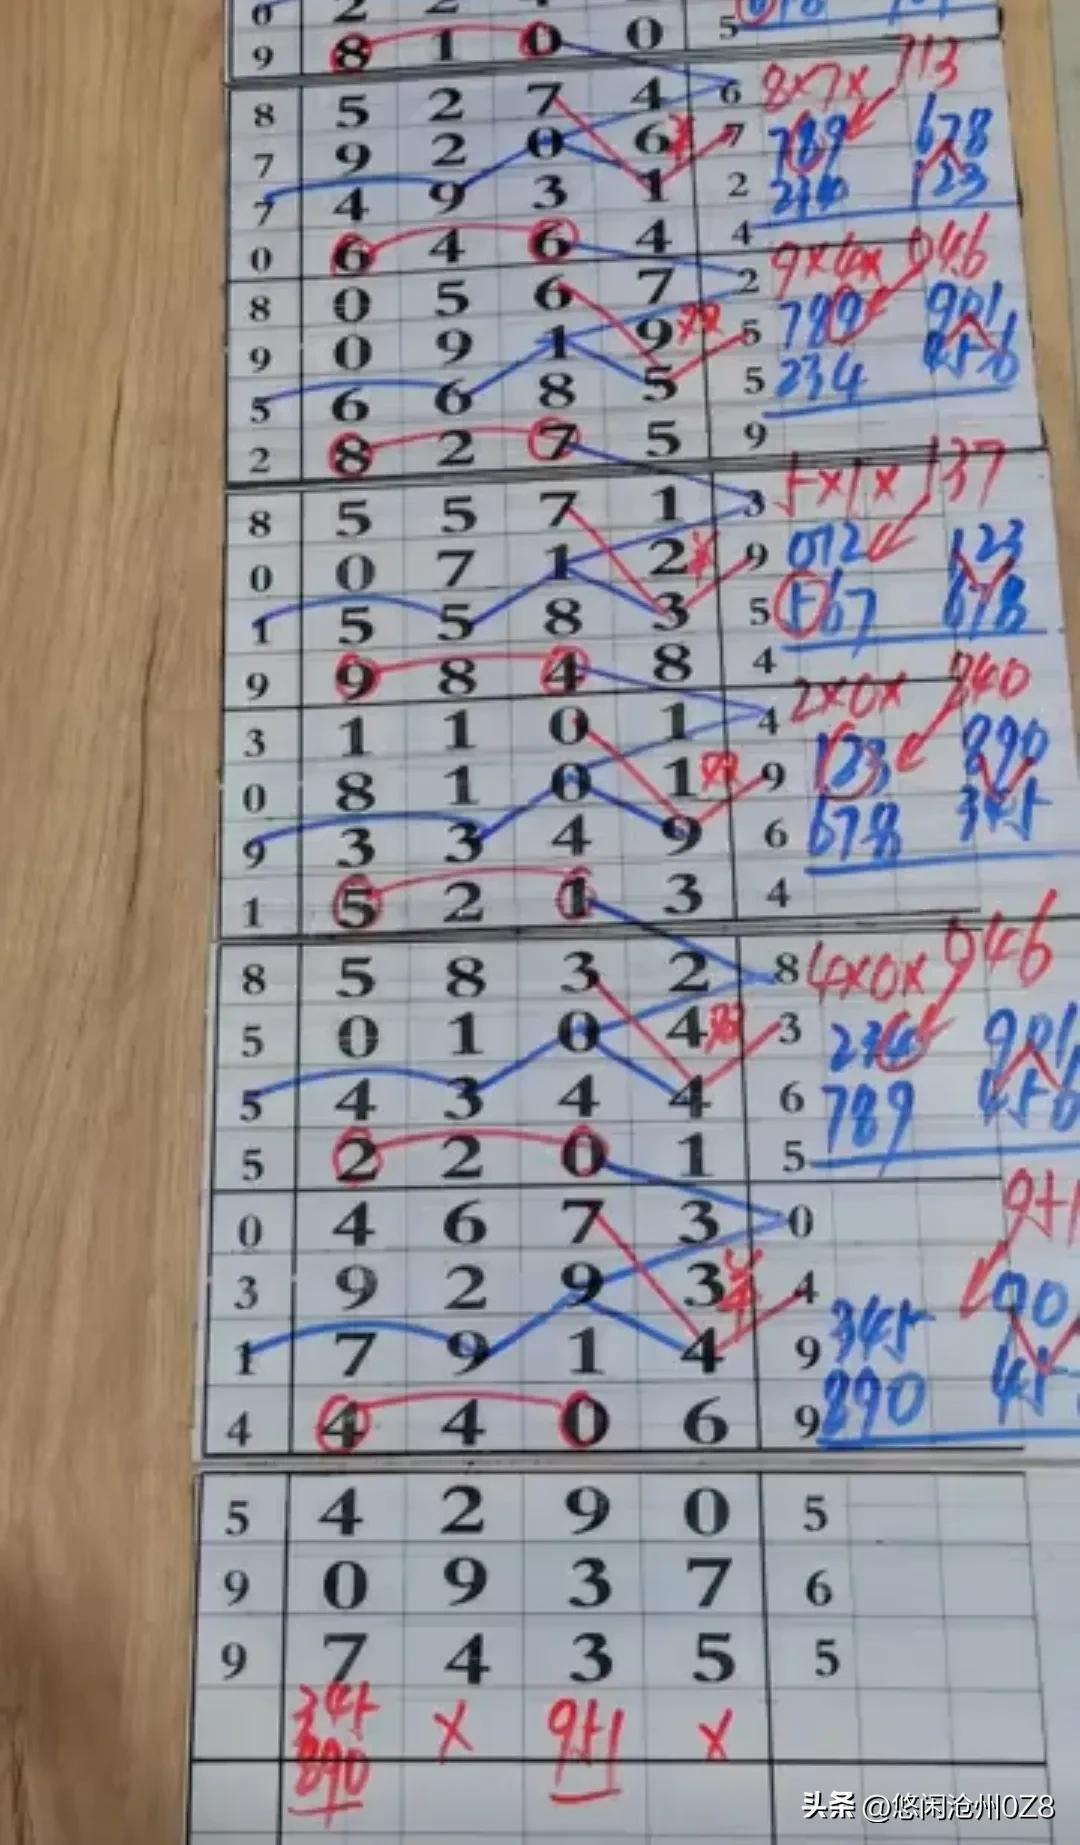 9 8 1 0 0 5
8 5 2 7 4 6 8×7× 713
7 9 2 0 6 7 789 678
7 4 9 3 1 2 234 123
0 6 4 6 4 4
8 0 5 6 7 2 9×4× 046
9 0 9 1 9 5 789 901
5 6 6 8 5 5 234 456
2 8 2 7 5 9
8 5 5 7 1 3 5×1× 137
0 0 7 1 2 9 012 123
1 5 5 8 3 5 567 678
9 9 8 4 8 4
3 1 1 0 1 4 2×0×
0 8 1 0 1 9 123 890
9 3 3 4 9 6 678 345
1 5 2 1 3 4
8 5 8 3 2 8 4×0× 046
5 0 1 0 4 3 234 901
5 4 3 4 4 6 789 456
5 2 2 0 1 5
0 4 6 7 3 0
3 9 2 9 3 4 345
1 7 9 1 4 9 890
4 4 4 0 6 9
5 4 2 9 0 5
9 0 9 3 7 6
9 7 4 3 5 5
345 × 951 ×
890
头条 @悠闲沧州0Z8